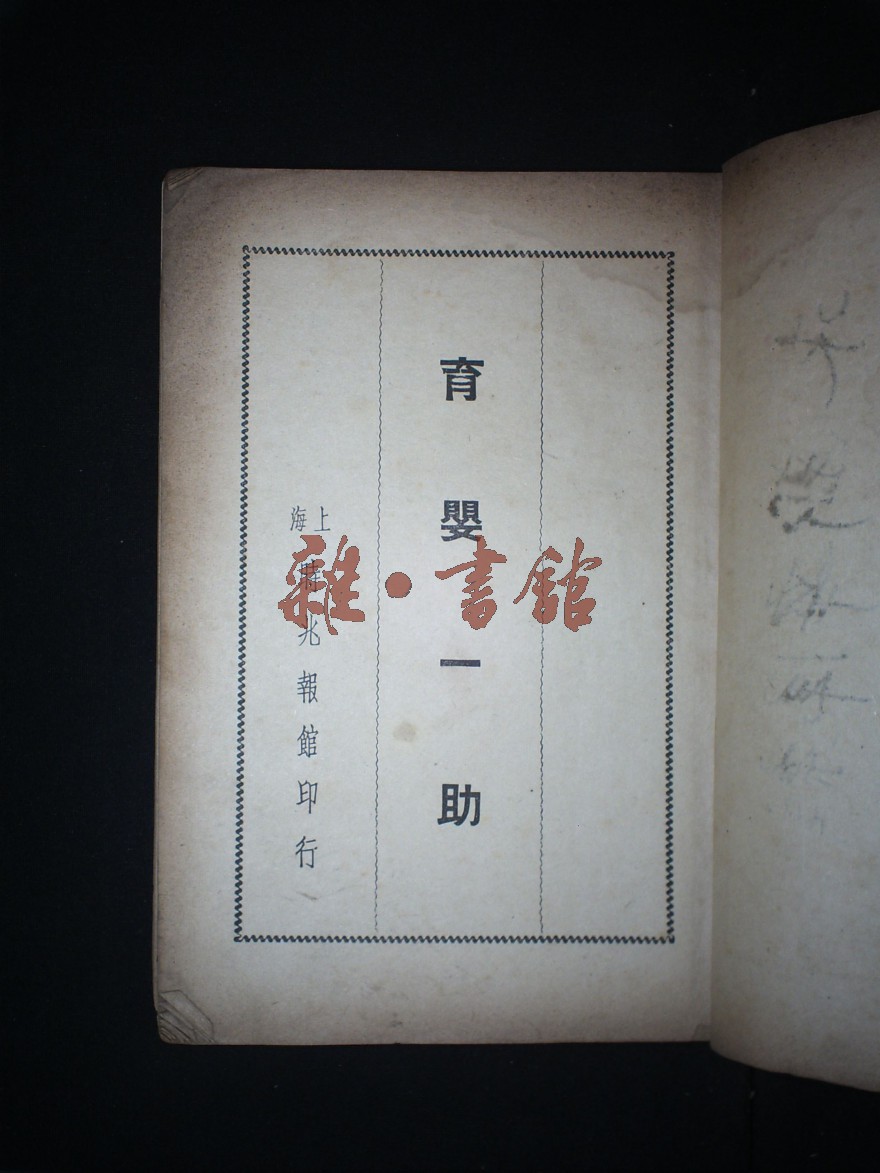 育嬰一助
上海
時兆報館印行
雜·書館